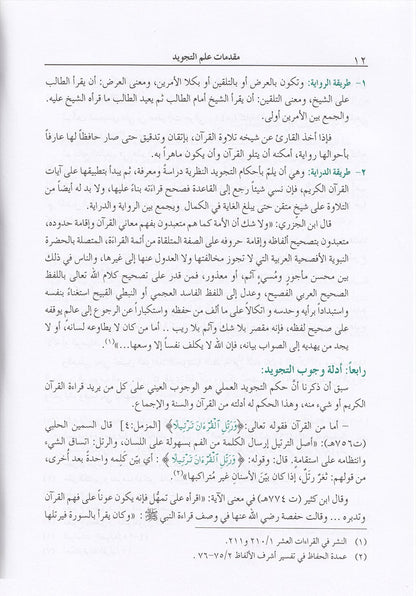 ١٢
مقدمات علم التجويد
١- طريقة الرواية: وتكون بالعرض أو بالتلقين أو بكلا الأمرين، ومعنى العرض: أن يقرأ الطالب
على الشيخ، ومعنى التلقين: أن يقرأ الشيخ أمام الطالب ثم يعيد الطالب ما قرأه الشيخ عليه.
والجمع بين الأمرين أولى.
فإذا أخذ القارئ عن شيخه تلاوة القرآن، بإتقان وتدقيق حتى صار حافظاً لها عارفاً
بأحوالها رواية، أمكنه أن يتلو القرآن وأن يكون ماهراً به.
٢- طريقة الدراية: وهي أن يلمّ بأحكام التجويد النظرية دراسةً ومعرفة، ثم يبدأ بتطبيقها على آيات
القرآن الكريم، فإن نسي شيئاً رجع إلى القاعدة فصحح قراءته بناءً عليها، ولا بد له أيضاً من
التلاوة على شيخ متقن حتى يبلغ الغاية في الكمال ويجمع بين الرواية والدراية.
قال ابن الجزري: «ولا شك أن الأمة كما هم متعبدون بفهم معاني القرآن وإقامة حدوده،
متعبدون بتصحيح ألفاظه وإقامة حروفه على الصفة المتلقاة من أئمة القراءة، المتصلة بالحضرة
النبوية الأفصحية العربية التي لا تجوز مخالفتها ولا العدول عنها إلى غيرها، والناس في ذلك
بين محسن مأجور ومُسيء آثم، أو معذور، فمن قدر على تصحيح كلام الله تعالى باللفظ
الصحيح العربي الفصيح، وعدل إلى اللفظ الفاسد العجمي أو النبطي القبيح استغناءً بنفسه
واستبداداً برأيه وحدسه و اتكالاً على ما ألف من حفظه، واستكباراً عن الرجوع إلى عالم يوقفه
على صحيح لفظه، فإنه مقصر بلا شك وآثم بلا ريب .. أما من كان لا يطاوعه لسانه، أو لا
يجد من يهديه إلى الصواب بيانه، فإن الله لا يكلف نفساً إلا وسعها...»(١).
رابعاً: أدلة وجوب التجويد:
سبق أن ذكرنا أنَّ حكم التجويد العملي هو الوجوب العيني على كل من يريد قراءة القرآن
الكريم أو شيء منه، وهذا الحكم له أدلته من القرآن والسنة والإجماع.
- أما من القرآن فقوله تعالى: ﴿وَرَتِّلِ الْقُرْءَانَ تَرْتِيلًا﴾ [المزمل:٤] قال السمين الحلبي
(ت٧٥٦هـ): «أصل الترتيل إرسال الكلمة من الفم بسهولة على اللسان، والرتل: اتساق الشيء
وانتظامه على استقامة. قال: وقوله: ﴿وَرَتِّلِ الْقُرْءَانَ تَرْتِيلًا﴾ : أي بيّن كلِمه واحدةً بعد أُخرى،
من قولهم: ثغرٌ رتَلٌ، إذا كان بيّنَ الأسنانِ غير مُتراكبها»(٢).
وقال ابن كثير (ت ٧٧٤هـ) في معنى الآية: «اقرأه على تمهُّل فإنه يكون عوناً على فهم القرآن
وتدبره ... وقالت حفصة رضي الله عنها في وصف قراءة النبي ﷺ: «وكان يقرأ بالسورة فيرتلها
(١) النشر في القراءات العشر ٢١٠/١ و٢١١.
(٢) عمدة الحفاظ في تفسير أشرف الألفاظ ٧٥/٢-٧٦.